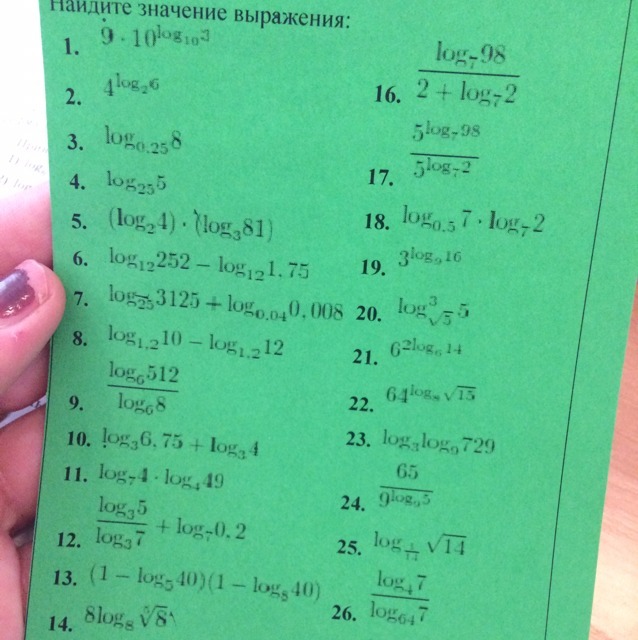 Найдите значение выражения:
1. 9 · 10^{log_{10}3}
2. 4^{log_{2}6}
3. log_{0,25}8
4. log_{25}5
5. (log_{2}4) · (log_{3}81)
6. log_{12}252 − log_{12}1,75
7. log_{25}3125 + log_{0,04}0,008
8. log_{1,2}10 − log_{1,2}12
9. \frac{log_{6}512}{log_{6}8}
10. log_{3}6,75 + log_{3}4
11. log_{7}4 · log_{4}49
12. \frac{log_{3}5}{log_{3}7} + log_{7}0,2
13. (1 − log_{5}40)(1 − log_{8}40)
14. 8log_{8}\sqrt[5]{8}
16. \frac{log_{7}98}{2 + log_{7}2}
17. \frac{5^{log_{7}98}}{5^{log_{7}2}}
18. log_{0,5}7 · log_{7}2
19. 3^{log_{9}16}
20. log^{3}_{\sqrt{5}}5
21. 6^{2log_{6}14}
22. 64^{log_{8}\sqrt{15}}
23. log_{3}log_{9}729
24. \frac{65}{9^{log_{9}5}}
25. log_{\frac{1}{14}}\sqrt{14}
26. \frac{log_{4}7}{log_{64}7}